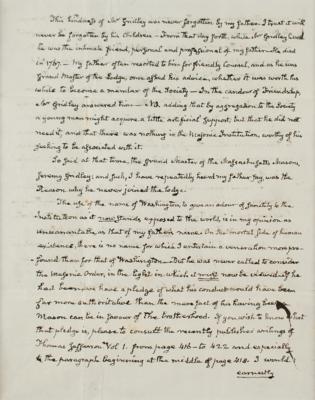 This kindness of Mr Gridley was never forgotten by my father. I trust it will
never be forgotten by his children — From that day forth, while Mr Gridley lived
he was the intimate friend, personal and professional of my father. He died
in 1767. — My father often resorted to him for friendly counsel, and as he was
Grand Master of the Lodge, once asked his advice, whether it was worth his
while to become a member of the Society — In the candour of friendship,
Mr Gridley answered him — No. adding that by aggregation to the Society
a young man might acquire a little artificial support, but that he did not
need it, and that there was nothing in the Masonic Institution, worthy of his
seeking to be associated with it.
So said at that time, the Grand Master of the Massachusetts Masons,
Jeremy Gridley; and such, I have repeatedly heard my father say, was the
Reason why he never joined the lodge.
The use of the name of Washington to give an odour of sanctity to the
Institution as it now stands exposed to the world, is in my opinion as
unwarrantable as that of my father's name. On the mortal side of human
existence, there is no name for which I entertain a veneration more pro-
found than for that of Washington — But he was never called to consider
the Masonic Order, in the light in which it must now be viewed. If he
had been, we have a pledge of what his conduct would have been
far more authoritative than the mere fact of his having been a
Mason can be in favour of the brotherhood. If you wish to know what
that pledge is, please to consult the recently published writings of
Thomas Jefferson Vol 1. from page 416 to 422 and especially
the paragraph beginning at the middle of page 418. I would
earnestly